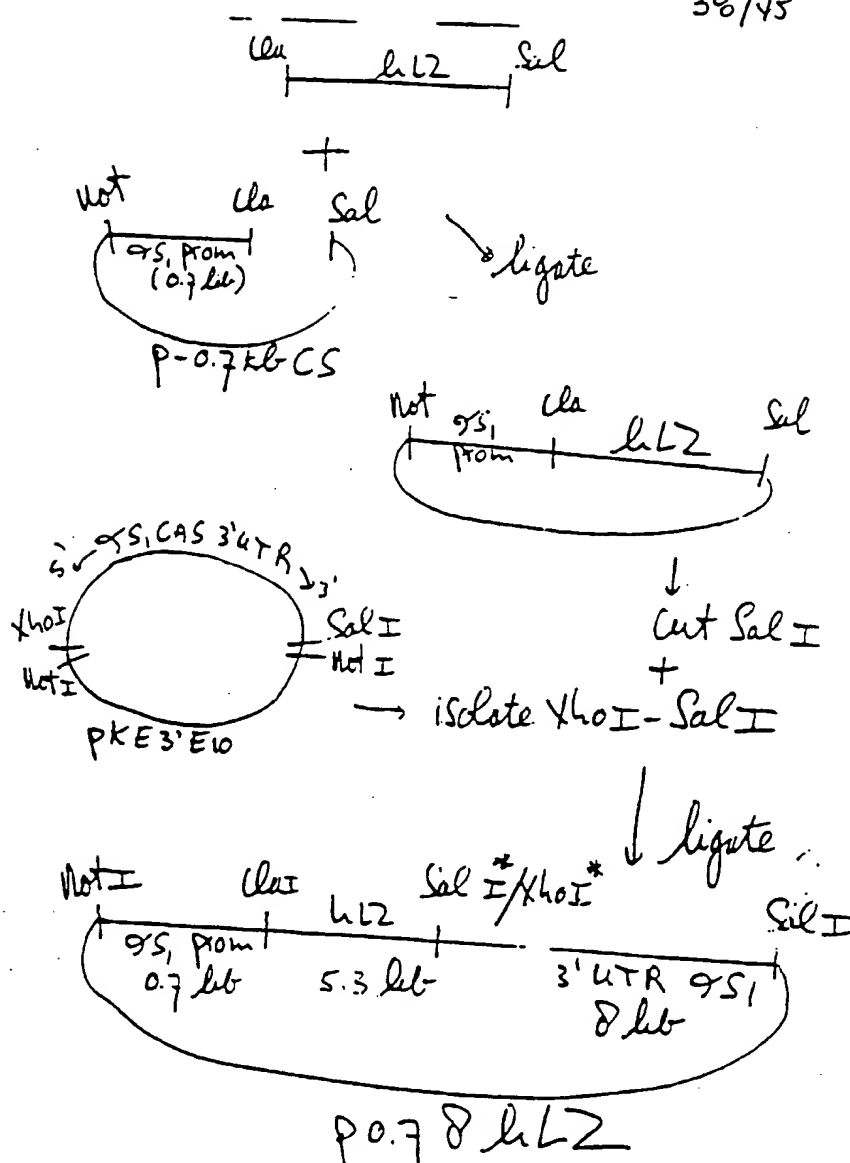 38/45
Cla hLZ Sal
+
Not Cla Sal
αS₁ prom
(0.7 kb)
ligate
p-0.7kb CS
Not αS₁ Cla hLZ Sal
prom
5' αS₁CAS 3'UTR 3'
XhoI Sal I
NotI Not I
pKE3'E10
Cut Sal I
+
isolate XhoI-Sal I
ligate
Not I ClaI hLZ Sal I*/XhoI* Sal I
αS₁ prom 3'UTR αS₁
0.7 kb 5.3 kb 8 kb
p0.7 8 hLZ